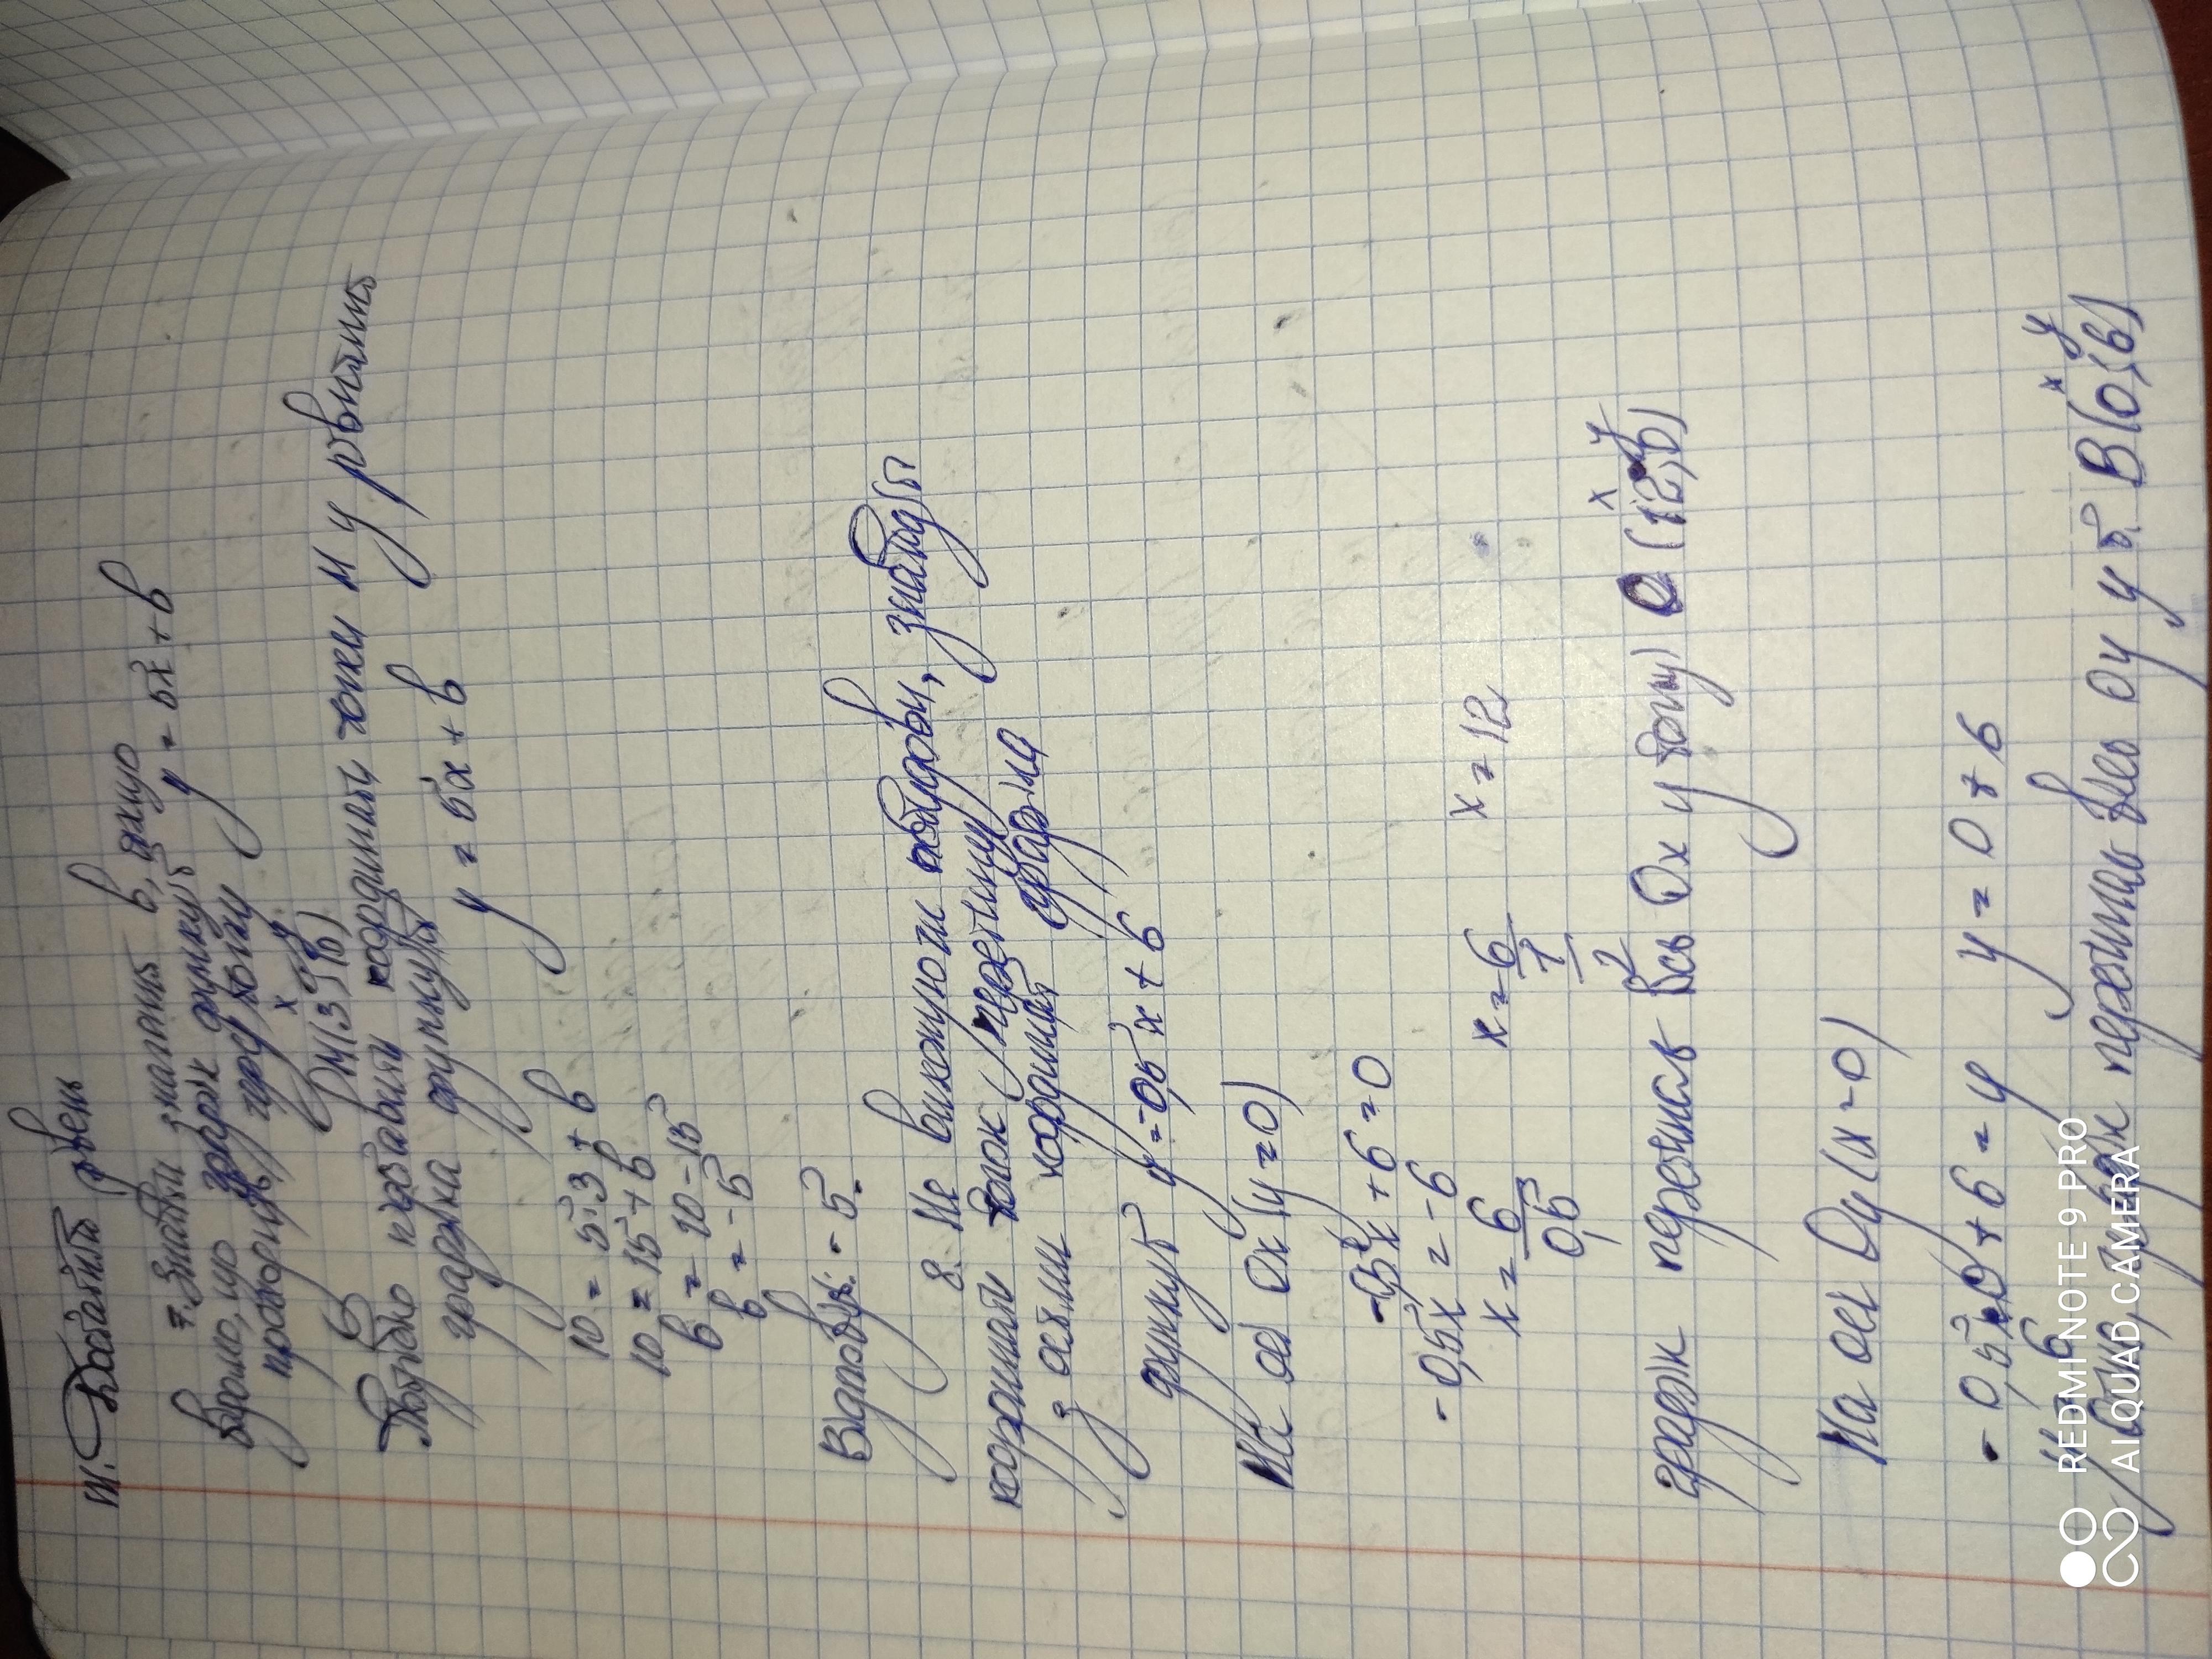 III. Достатній рівень
7. Знайти значення b, якщо
відомо, що графік функції y = 5x + b
проходить через точку
M(3; 10)
x y
Потрібно підставити координати точки M у рівняння
графіка функції y = 5x + b
10 = 5·3 + b
10 = 15 + b
b = 10 - 15
b = -5
Відповідь: -5.
8. Не виконуючи побудови, знайдіть
координати точок перетину
з осями координат графіка
функції y = -0,5x + 6
На осі Ox (y = 0)
-0,5x + 6 = 0
-0,5x = -6
x = 6/0,5 x = 6/1/2 x = 12
x y
графік перетинає вісь Ox у точці (12; 0)
На осі Oy (x = 0)
-0,5·0 + 6 = y y = 0 + 6
y = 6
x y
графік перетинає вісь Oy у т. B(0; 6)
REDMI NOTE 9 PRO
AI QUAD CAMERA